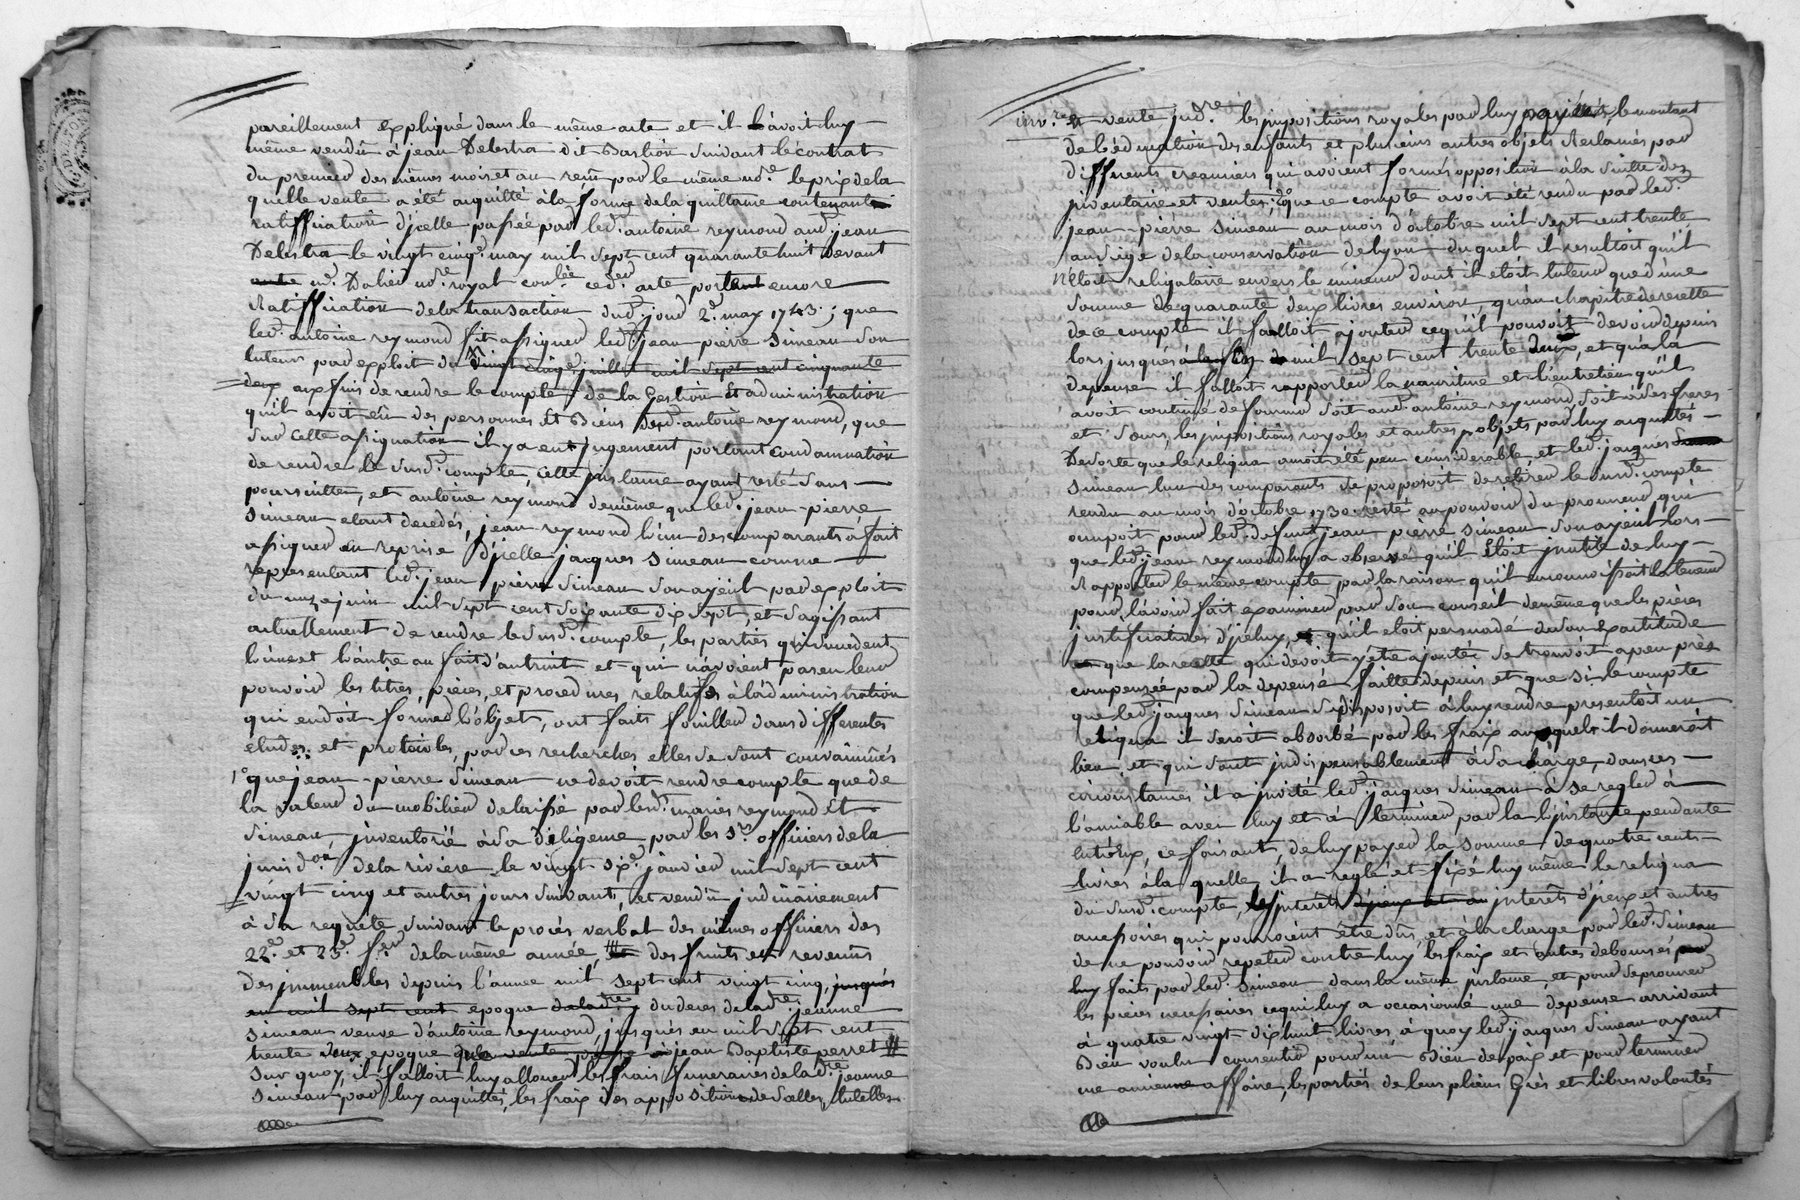 pareillement expliqué dans le même acte et il l'avoit luy
même vendû à jean Delestra dit Bastion suivant le contrat
du premier des mêmes mois et an reçu par le même no.re le prix de la
quelle vente a été aquitté à la forme de la quittance contenante
ratiffication d'jcelle passée par led. antoine reymond aud. jean
Delestra le vingt cinq may mil sept cent quarante huit devant
me. Dalier no.re royal led. acte portant encore
Ratiffication de la transaction dud. jour 2e. may 1743.; que
led. antoine reymond fit assigner led. jean pierre Simeau son
tuteur par exploit du vingt cinq juillet mil sept cent cinquante
deux aux fins de rendre le compte de la Gestion Et administration
qu'il avoit eû des personnes Et Biens dud. antoine reymond, que
sur cette assignation il y a eu jugement portant condamnation
de rendre le susd. compte, cette jnstance ayant resté sans
poursuittes, et antoine reymond de même que led. jean-pierre
Simeau etant decedés, jean reymond l'un des comparants a fait
assigner en reprise d'jcelle jacques Simeau comme
representant led. jean pierre Simeau son ayeul par exploit
du onze juin mil sept cent soixante dix sept, et s'agissant
actuellement de rendre le susd. compte, les parties qui succedent
l'une et l'autre au fait d'autruit et qui n'avoient pas en leur
pouvoir les titres, pièces, et procedures relatifs à l'administration
qui en doit former l'objet, ont faits fouiller dans differentes
etudes et protocoles, par ces recherches elles se sont convaincuës
1° que jean-pierre Simeau ne devoit rendre compte que de
la valeur du mobilier delaissé par les mariés reymond Et
Simeau, jnventorié à sa diligence par les Srs. officiers de la
jurisd.on de la riviere le vingt six janvier mil sept cent
vingt cinq et autres jours suivants, et vendû judiciairement
à sa requête suivant le procès verbal des mêmes officiers des
22e. et 23e. f.er de la même année, des fruits et revenus
des jmmeubles depuis l'année mil sept cent vingt cinq, jusques
en mil sept cent epoque du deces de lad. jeanne
Simeau veuve d'antoine reymond, jusques en mil sept cent
trente deux epoque que la vente passée à jean Baptiste perret
Sur quoy, il falloit luy allouer les frais funeraires de lad. jeanne
Simeau par luy aquittés, les fraix des appositions de scelles, tutelles
inv.re et vente jud.re les jmpositions royales par luy payées, le montant
de l'éducation des enfants et plusieurs autres objets Reclamés par
differents creanciers qui avoient formés opposition à la suitte des
jnventaire et ventes; 2° que ce compte avoit été rendu par led.
jean-pierre Simeau au mois d'octobre mil sept cent trente
au siege de la conservation de lyon duquel il resultoit qu'il
n'étoit reliquataire envers le mineur dont il etoit tuteur que d'une
somme de quarante deux livres environ, qu'au chapitre de recette
de ce compte il falloit ajouter ce qu'il pouvoit devoir depuis
lors jusques à mil sept cent trente deux, et qu'à la
depense il falloit rapporter la nourriture et l'entretien qu'il
avoit continué de fournir soit aud. antoine reymond, soit à ses freres
et sœurs, les jmpositions royales et autres objets par luy aquittés
De sorte que le reliqua auroit été peu considerable et led. jacques
Simeau l'un des comparants se proposoit de retirer le susd. compte
rendu au mois d'octobre 1730. resté au pouvoir du procureur qui
occupoit pour led. defunt jean pierre Simeau son ayeul lors
que led. jean reymond luy a observé qu'il étoit jnutile de luy
Rapporter le même compte par la raison qu'il reconnoissoit la teneur
pour l'avoir fait examiner par son conseil de même que les pièces
justificatives d'jceluy, qu'il etoit persuadé de son Exactitude
que la recette qui devoit y être ajoutée se trouvoit a peu près
compensée par la depense faitte depuis et que si le compte
que led. jacques Simeau se disposoit à luy rendre presentoit un
reliqua il seroit absorbé par les fraix auxquels il donneroit
lieu et qui sont jndispensablement à sa charge, dans ces
circonstances il a jnvité led. jacques Simeau à se regler à
l'amiable avec luy et à terminer par la l'jnstance pendante
entr'eux, ce faisant, de luy payer la somme de quatre cents
livres à la quelle il a reglé et fixé luy même le reliqua
du susd. compte, les jnterêts d'jceux et autres
accessoires qui pourroient être dûs, et à la charge par led. Simeau
de ne pouvoir repeter contre luy les fraix et autres deboursés
luy faits par led. Simeau dans la même jnstance, et pour se procurer
les pièces necessaires ce qui luy a occasionné une depense arrivant
à quatre vingt dix huit livres, à quoy led. jacques Simeau ayant
Bien voulu consentir pour un Bien de paix et pour terminer
une ancienne affaire, les parties de leurs pleins Grès et libres volontés